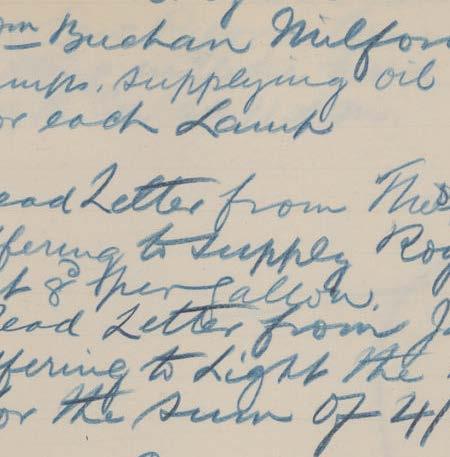 Wm Buchan Milfor
mps. supplying oil
or each Lamp
ead Letter from Thos
ffering to supply Ro
t 8d per gallon.
Read Letter from J
ffering to Light the
or the sum of 4/